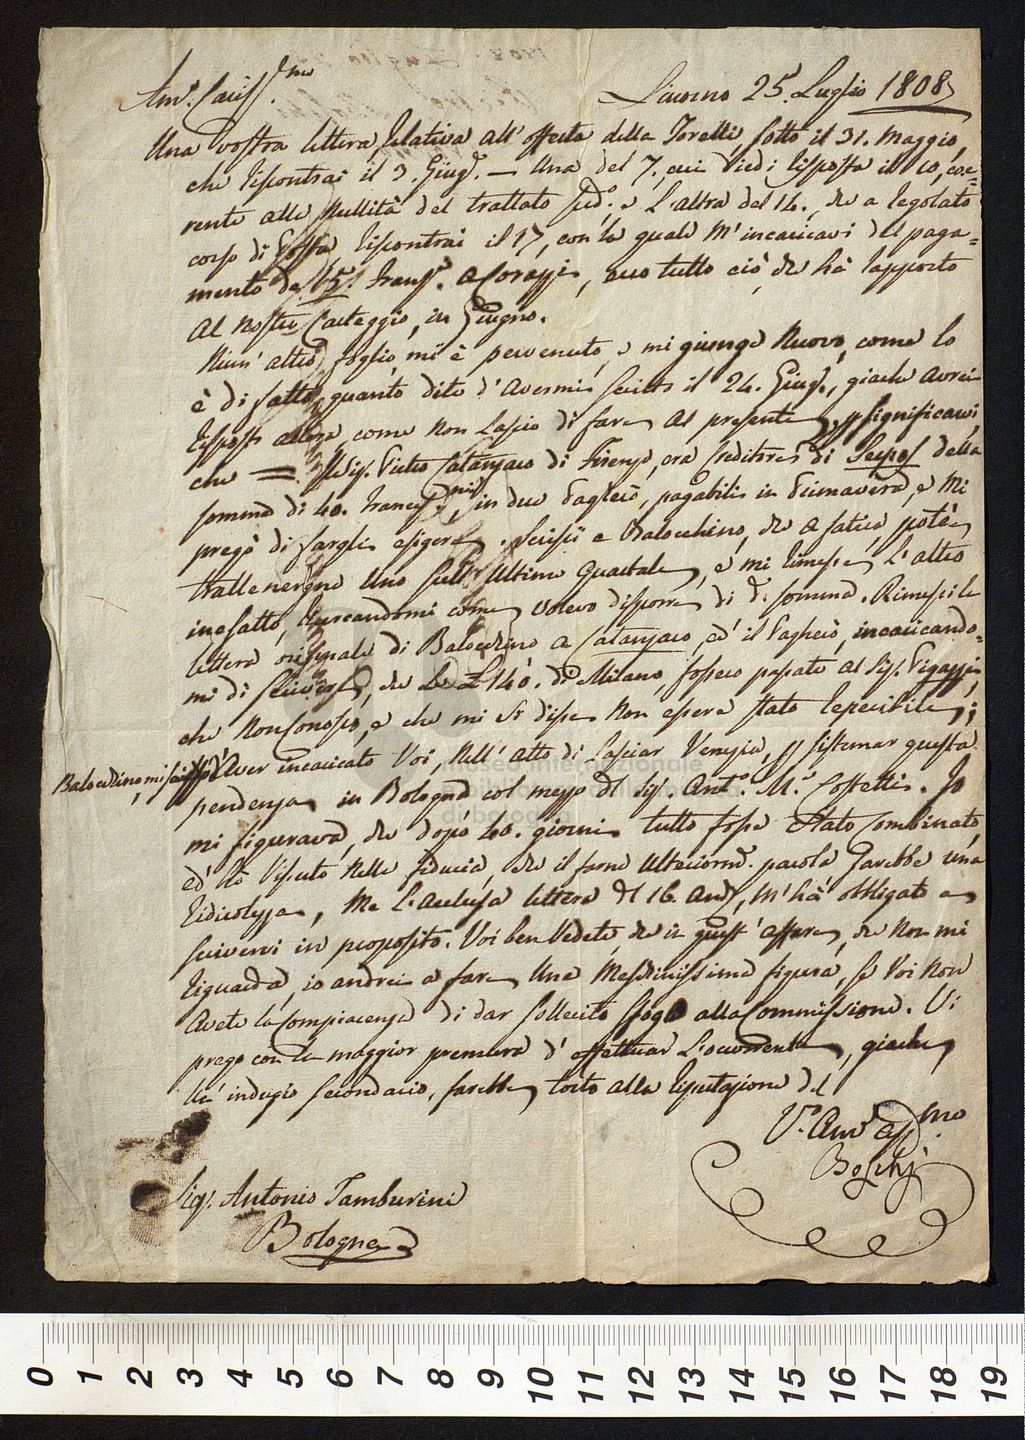 Am.º Cariss.mo
Livorno 25. Luglio 1808
Una vostra lettera relativa all' offerta della Torelli, sotto il 31. Maggio,
che riscontrai il 3. Giug.º — Una del 7, cui diedi risposta il 10, coe=
rente alla Nullità del trattato sud.º e l'altra del 14., che a regolato
corso di Posta riscontrai il 17, con la quale m'incaricavi del paga=
mento de 65. Franc.i a Corazzi, ecco tutto ciò che hà rapporto
al nostro Carteggio, in Giugno.
Niun' altro foglio mi è pervenuto, e mi giunge nuovo, come lo
è di fatto, quanto dite d'avermi scritto il 24. Giug.º, giache avrei
risposto allora, come non lascio di fare al presente, p significarvi
che = Il Sig. Pietro Catanzaro di Firenze, era creditore di della
somma di 40. Franc.ni, in due Pagherò, pagabili in Primavera, e mi
pregò di fargli esigere. Scrissi a Balocchino, che a fatica, potè
trattenergne uno sull' ultimo Quartale, e mi rimesse l'altro
inesatto, ricercandomi come volevo disporre di d.ª somma. Rimessi la
lettera originale di Balocchino a Catanzaro, ed il Pagherò, incaricando=
mi di scrivergli, che le £ 140. di Milano, fossero passate al Sig. Pigazzi,
che non conosco, e che mi si disse non essere stato reperibile;
Balocchino, mi scrisse d'aver incaricato Voi, nell' atto di lasciar Venezia, p sistemar questa
pendenza in Bologna col mezzo del Sig. Ant.º M.ª Coffetti. Io
mi figurava, che dopo 40. giorni tutto fosse stato combinato,
ed hò vissuto nella fiducia, che il farne ulteriorm.e parola sarebbe una
ridicolezza, ma l'acclusa lettera del 16. And.e, m'hà obbligato a
scrivervi in proposito. Voi ben vedete, che in quest' affare, che non mi
riguarda, io andrei a fare una meschinissima figura, se Voi non
avete la compiacenza di dar sollecito sfogo alla Commissione. Vi
prego con la maggior premura d'effettuar l'occorrente, giache
un indugio secondario, farebbe torto alla reputazione del
V.º Am.º aff.mo
Boschi
Sig.r Antonio Tamburini
Bologna
museo internazionale
e biblioteca della musica
di bologna
0 1 2 3 4 5 6 7 8 9 10 11 12 13 14 15 16 17 18 19